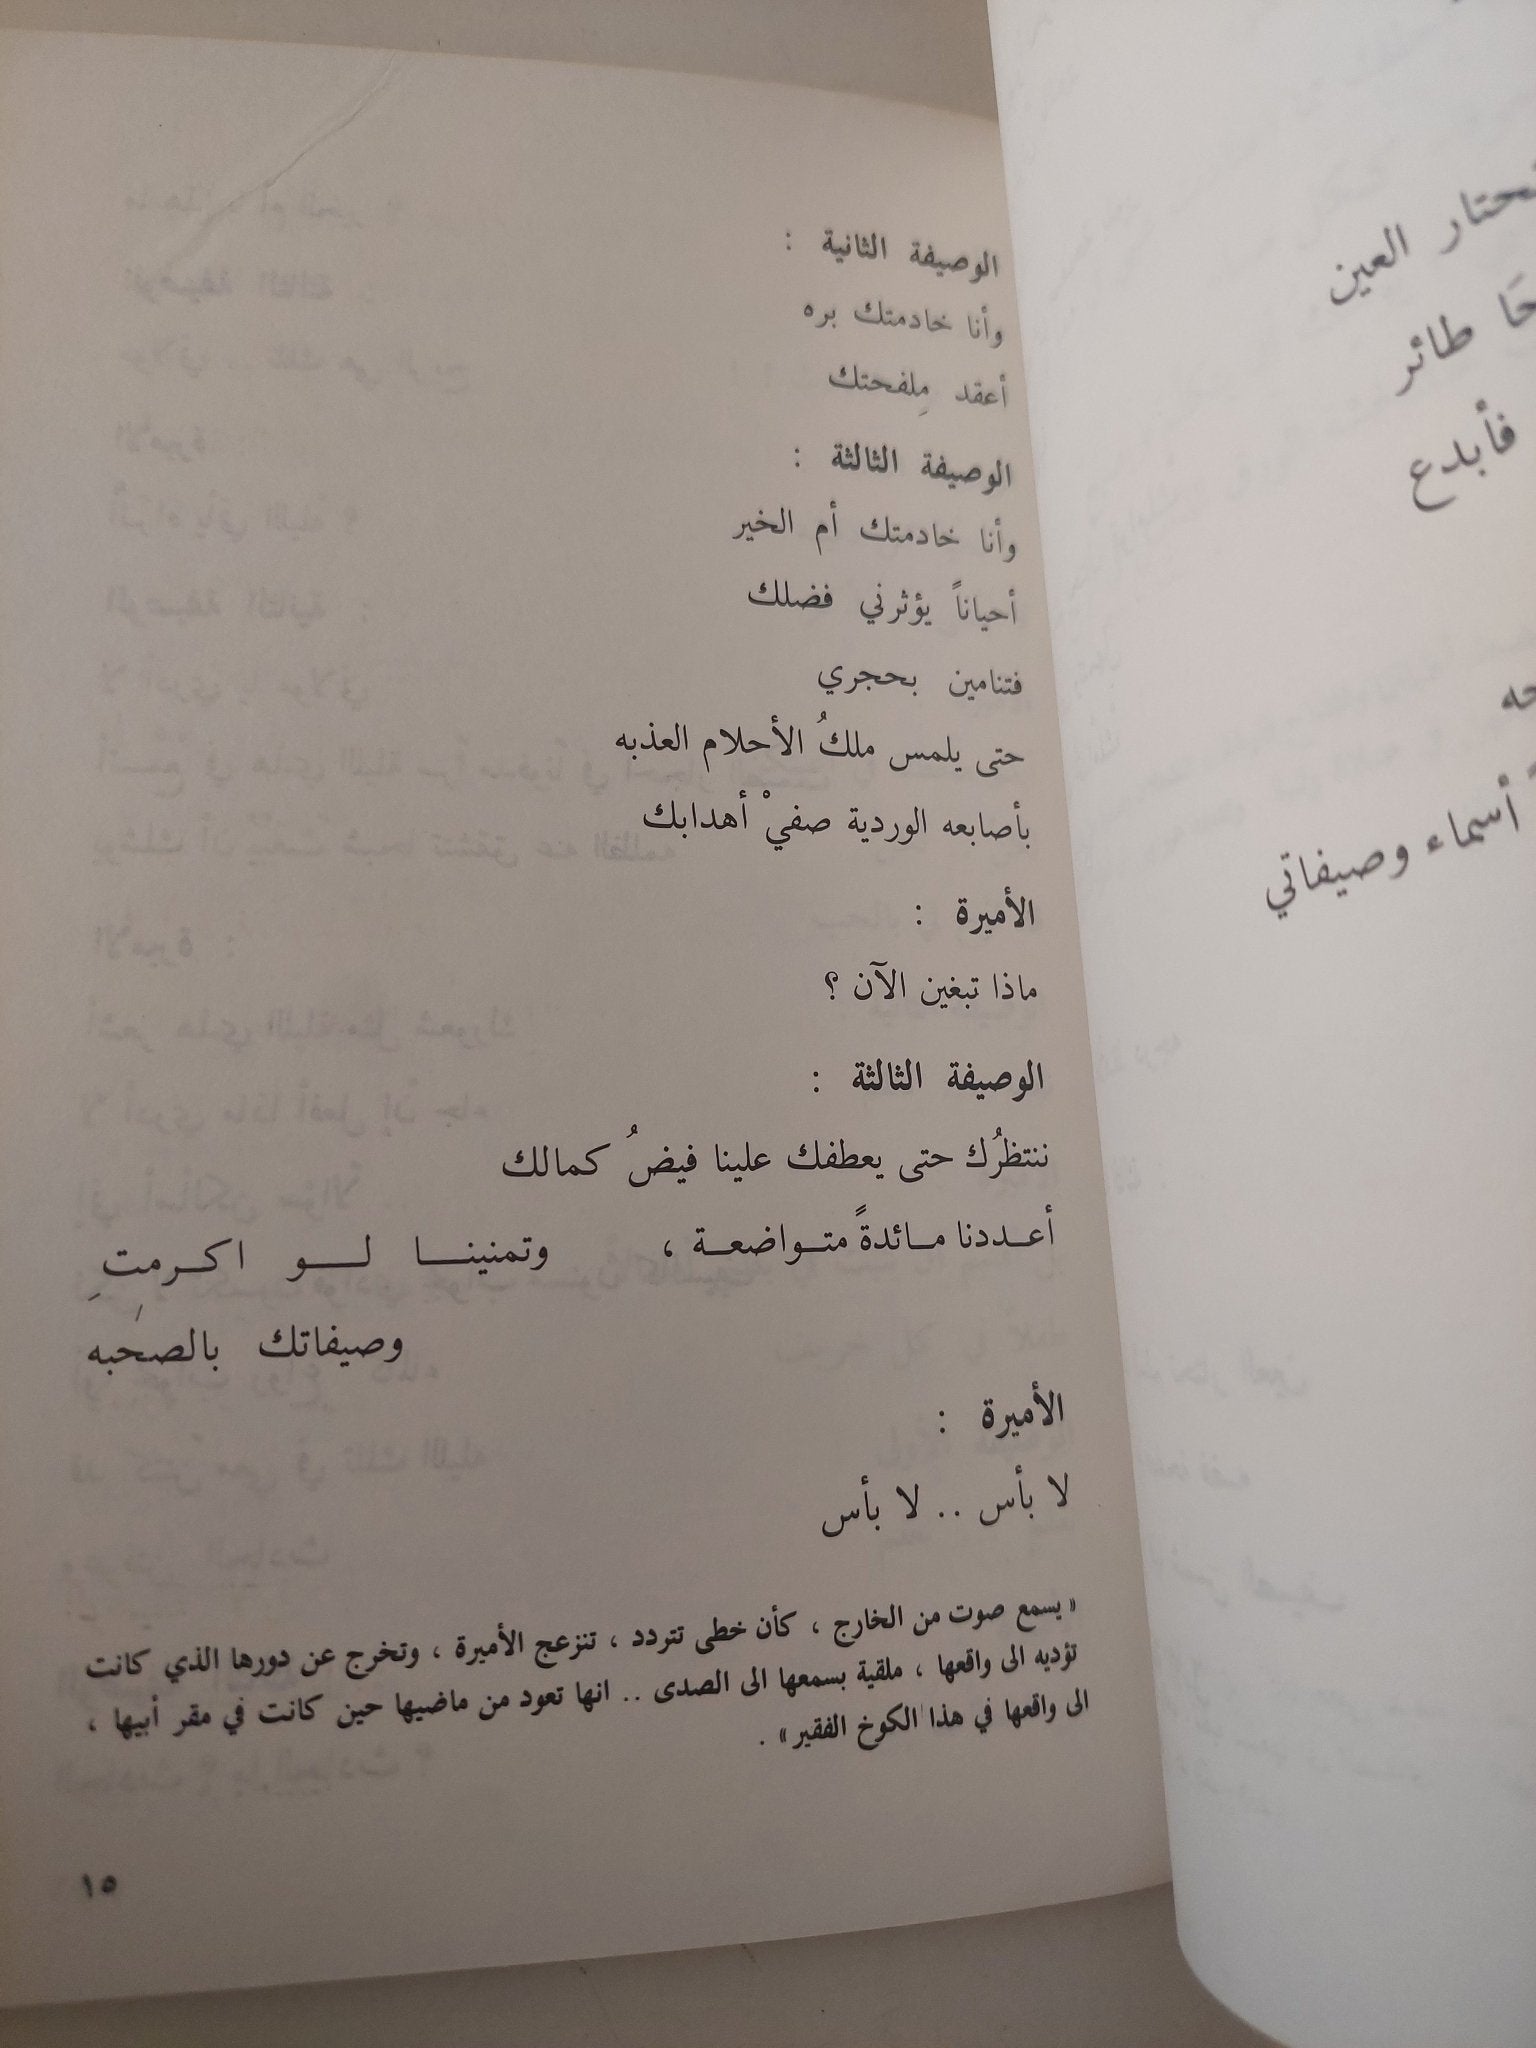 الوصيفة الثانية :
وأنا خادمتك بره
أعقد مِلفحتك
الوصيفة الثالثة :
وأنا خادمتك أم الخير
أحياناً يؤثرني فضلك
فتنامين بحجري
حتى يلمس ملكُ الأحلام العذبه
بأصابعه الوردية صفيْ أهدابك
الأميرة :
ماذا تبغين الآن ؟
الوصيفة الثالثة :
ننتظرُك حتى يعطفك علينا فيضُ كمالك
أعـددنا مـائدةً متـواضعـة ، وتمنينـا لـو اكـرمتِ
وصيفاتك بالصحبه
الأميرة :
لا بأس .. لا بأس
« يسمع صوت من الخارج ، كأن خطى تتردد ، تنزعج الأميرة ، وتخرج عن دورها الذي كانت
تؤديه الى واقعها ، ملقية بسمعها الى الصدى .. انها تعود من ماضيها حين كانت في مقر أبيها ،
الى واقعها في هذا الكوخ الفقير » .
١٥
تحتار العين
طائر
فأبدع
أسماء وصيفاتي